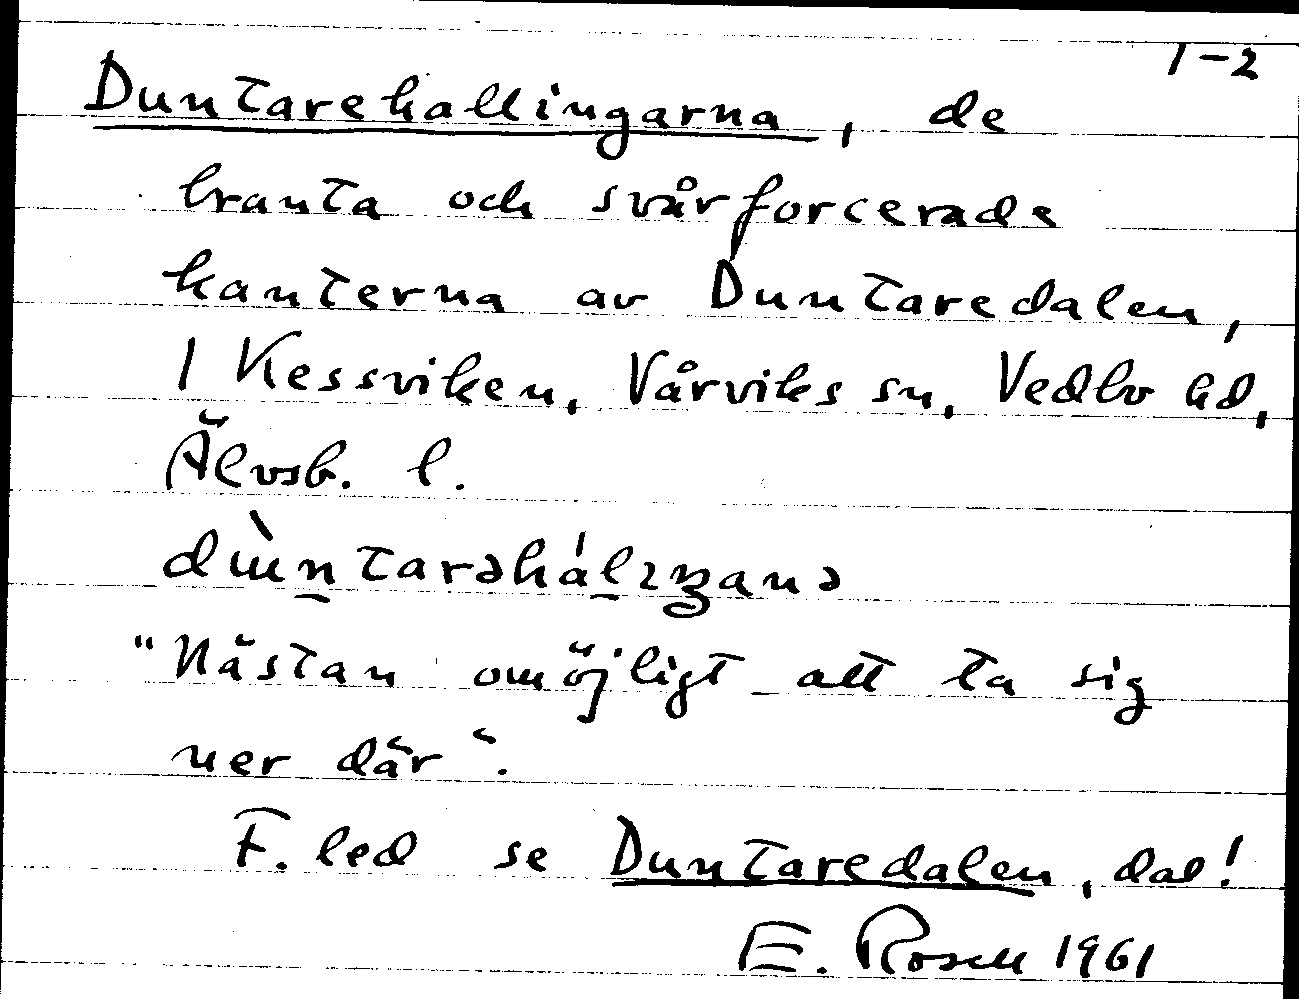 1-2
Duntarehallingarna, de
branta och svårforcerade
kanterna av Duntaredalen,
I Kessviken, Vårviks sn, Vedbo hd,
Älvsb. l.
"Nästan omöjligt att ta sig
ner där".
F. led se Duntaredalen, dal!
E. Rosell 1961